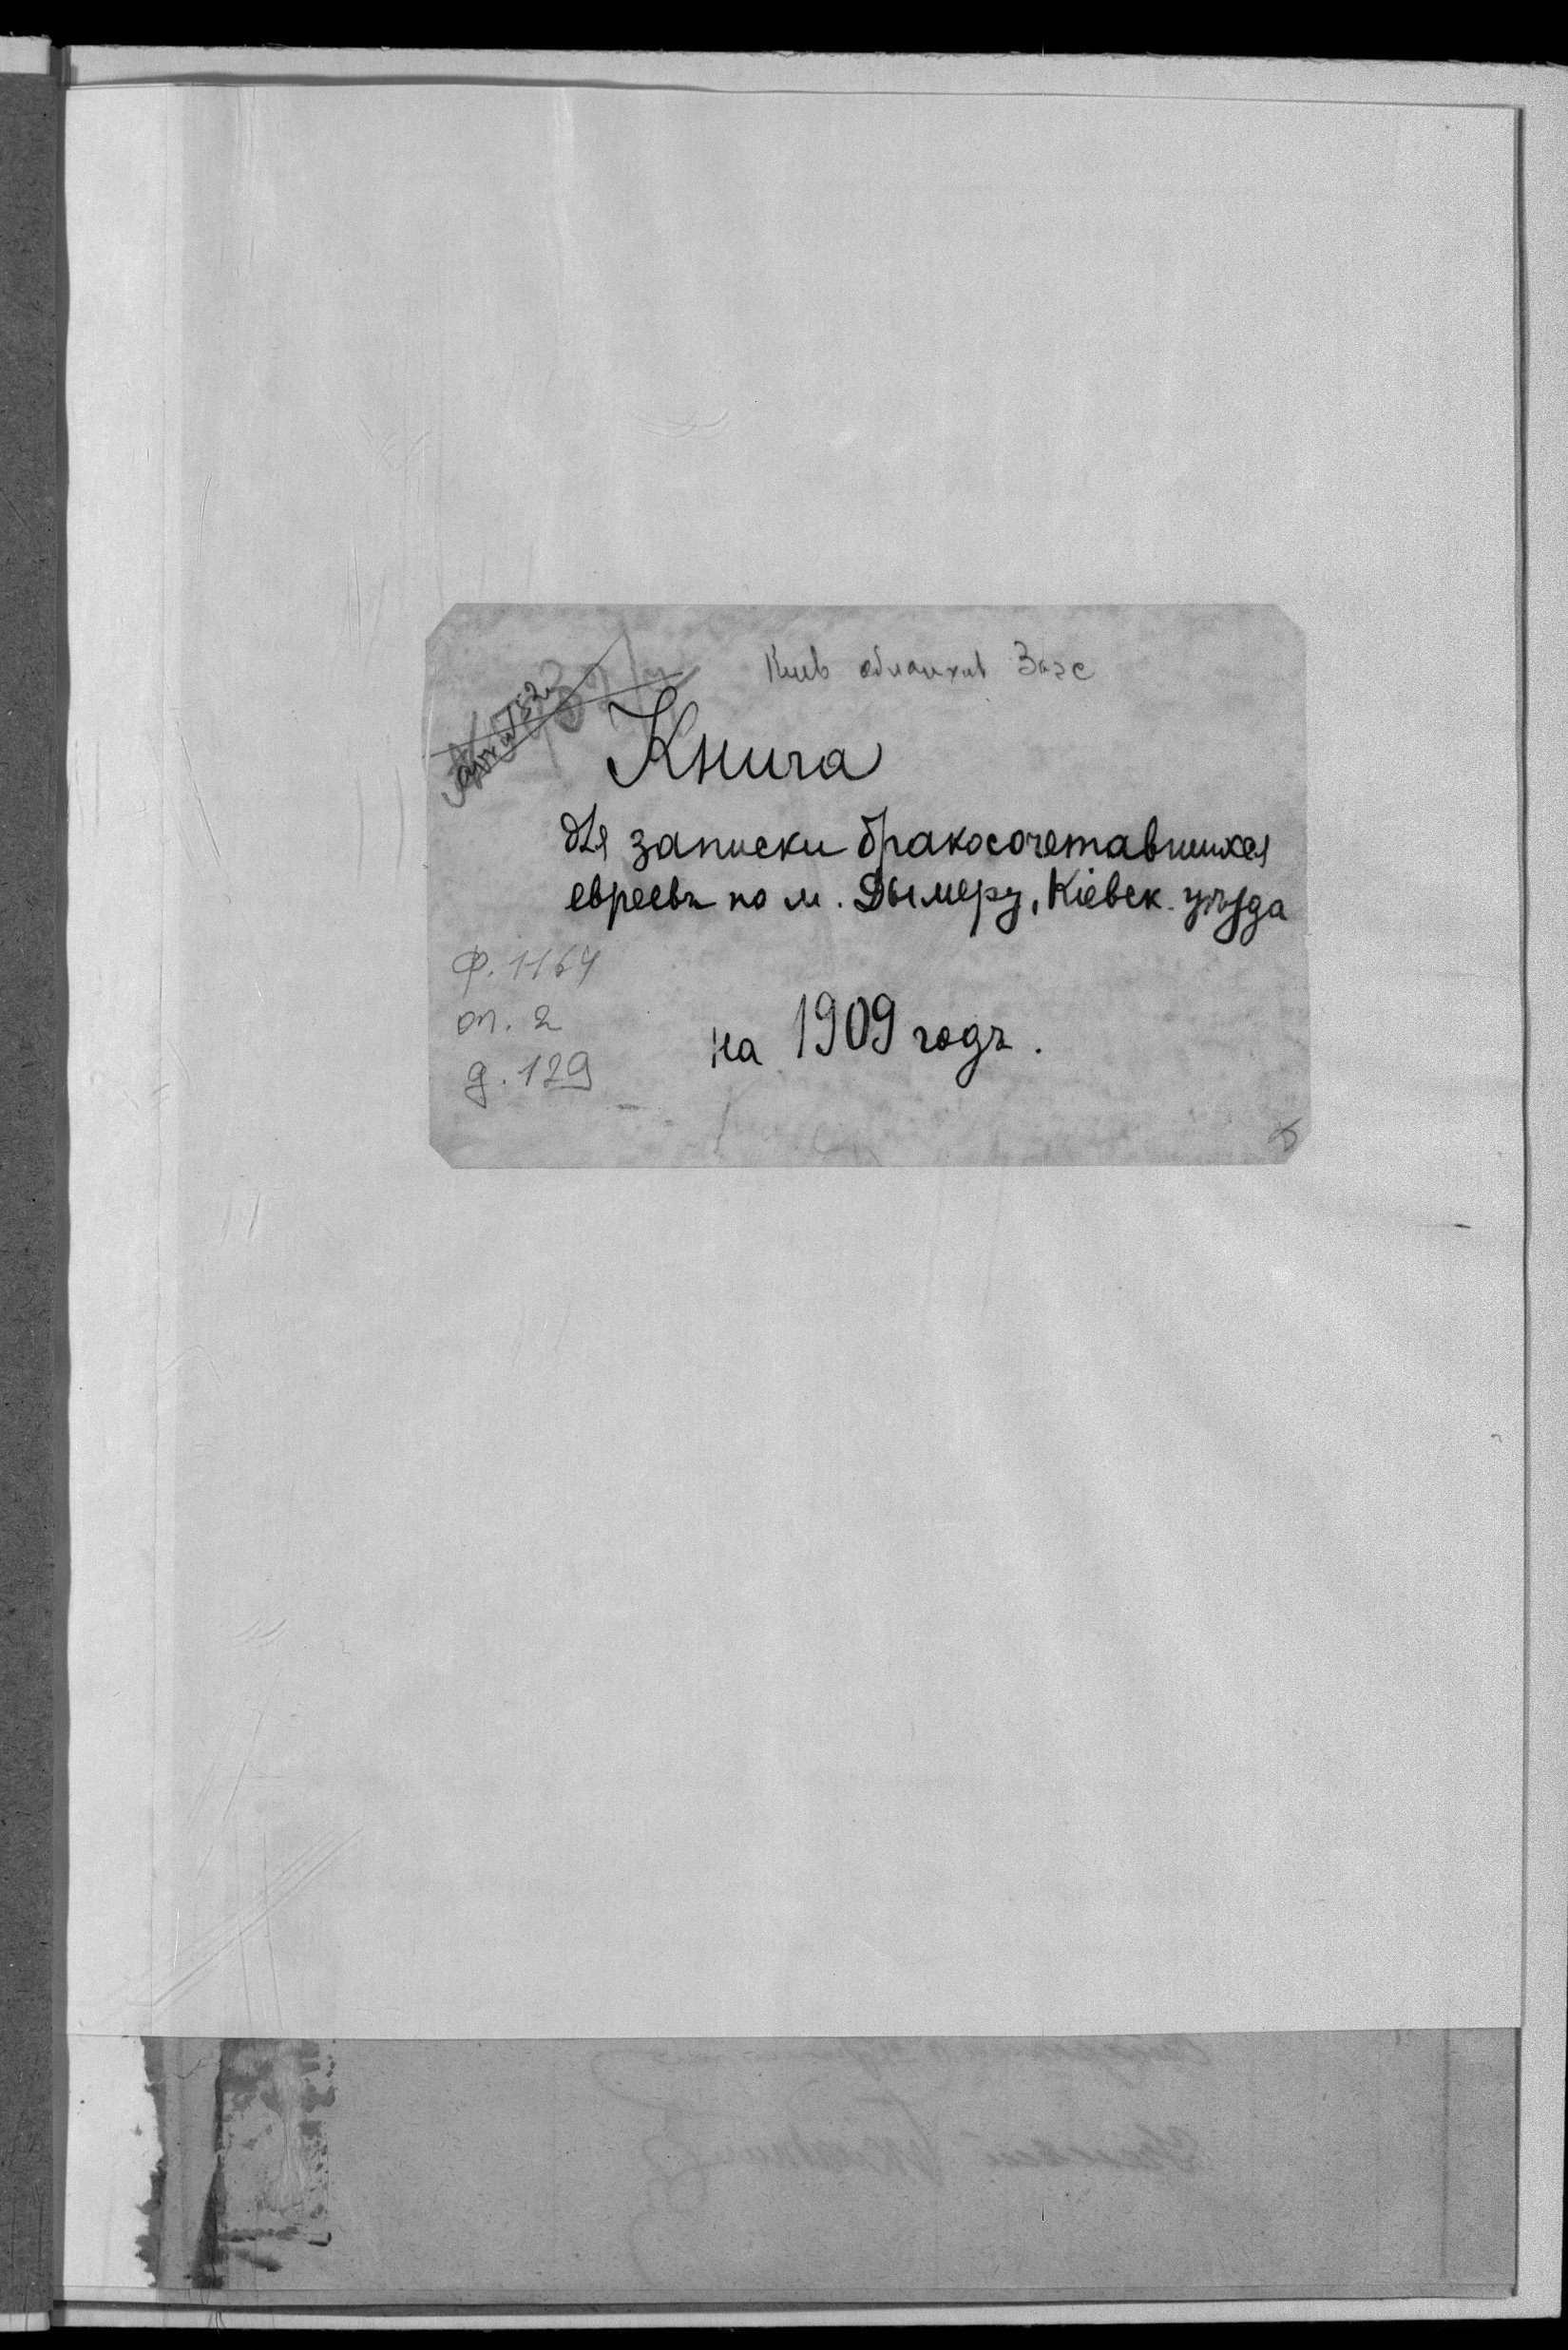 Киев облархив Загс
Книга
для записки бракосочетавшихся
евреевъ по м. Дымеру, Кіевск. уѣзда
ф. 1164
оп. 2
на 1909 годъ.
д. 129